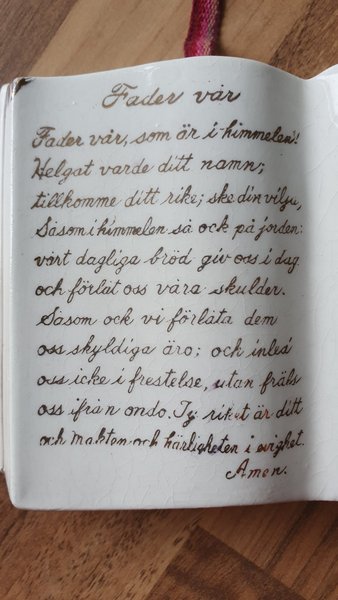 Fader vår
Fader vår, som är i himmelen!
Helgat varde ditt namn;
tillkomme ditt rike; ske din vilja,
Såsom i himmelen så ock på jorden:
vårt dagliga bröd giv oss i dag
och förlåt oss våra skulder.
Såsom ock vi förlåta dem
oss skyldiga äro; och inled
oss icke i frestelse, utan fräls
oss ifrån ondo. Ty riket är ditt
och makten och härligheten i evighet.
Amen.